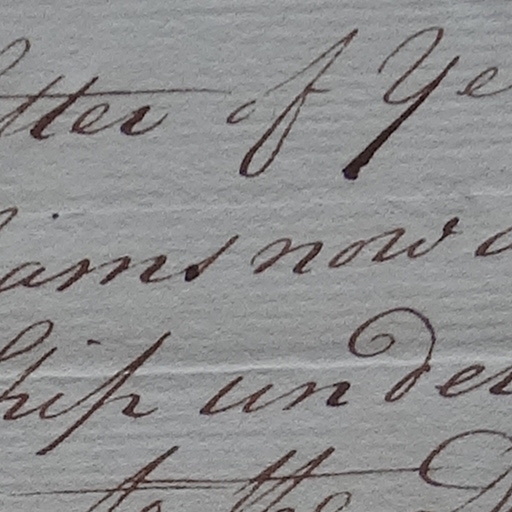 tter of Ye
aims now
hip under
to the